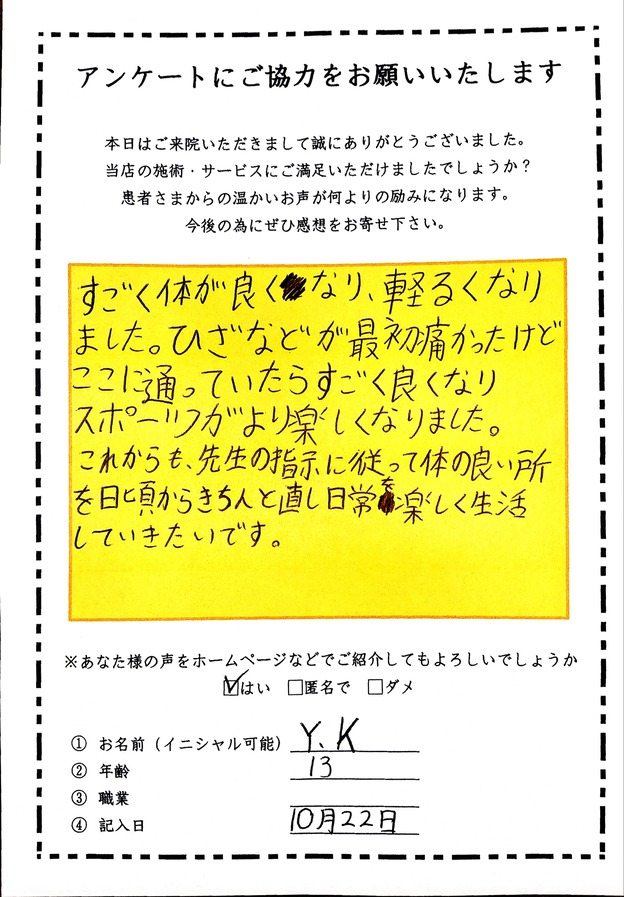 アンケートにご協力をお願いいたします
本日はご来院いただきまして誠にありがとうございました。
当店の施術・サービスにご満足いただけましたでしょうか？
患者さまからの温かいお声が何よりの励みになります。
今後の為にぜひ感想をお寄せ下さい。
すごく体が良くなり、軽るくなり
ました。ひざなどが最初痛かったけど
ここに通っていたらすごく良くなり
スポーツがより楽しくなりました。
これからも、先生の指示に従って体の良い所
を日頃からきちんと直し日常を楽しく生活
していきたいです。
※あなた様の声をホームページなどでご紹介してもよろしいでしょうか
☑はい □匿名で □ダメ
① お名前（イニシャル可能） Y.K
② 年齢 13
③ 職業
④ 記入日 10月22日